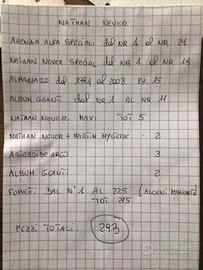 NATHAN NEVER
AGENZIA ALFA SPECIALI dal NR 1 al NR 21
NATHAN NEVER SPECIAL dal NR 1 al NR 19
ALMANACCO dal 1994 al 2008 PZ. 15
ALBUM GIGANTI dal NR 1 AL NR 11
NATHAN NEVER MAXI TOT 5
NATHAN NEVER + MARTIN MYSTERE 2
ASTEROIDE ARGO 3
ALBUM GIGANTI 2
FUMETTI DAL N° 1 AL 225 (ALCUNI MANCANTI)
TOT. 215
PEZZI TOTALI: 293
Subito.it